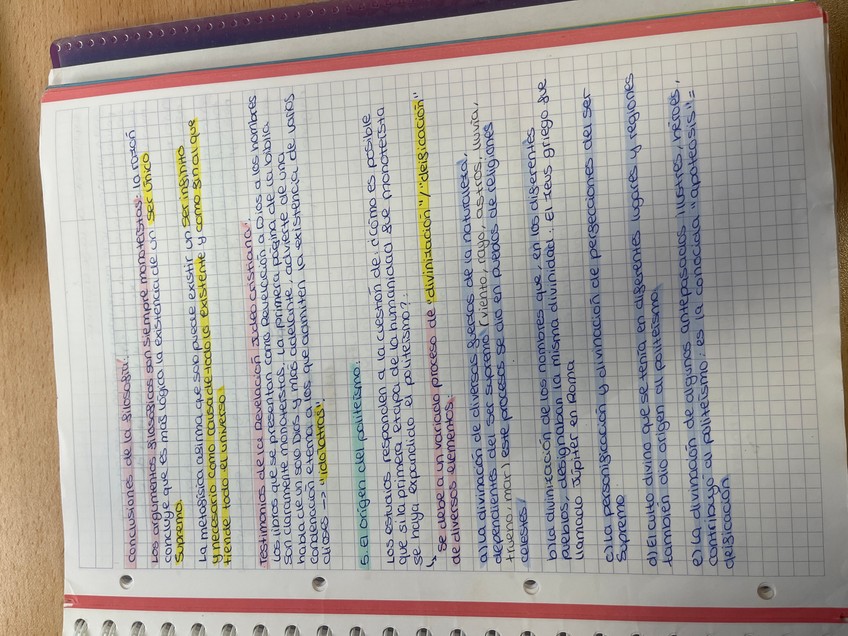 Conclusiones de la filosofía:
Los argumentos filosóficos son siempre monoteístas: la razón
concluye que es más lógica la existencia de un ser único
supremo.
La metafísica afirma que solo puede existir un ser infinito
y necesario como causa de todo lo existente y como fin al que
tiende todo el universo.
Testimonios de la Revelación Judeocristiana:
Los libros que se presentan como Revelación a Dios a los hombres
son claramente monoteístas. La primera página de la biblia
habla de un solo Dios y más adelante, advierte de una
condenación eterna a los que admiten la existencia de varios
dioses -> "idolatras".
5. El origen del politeísmo:
Los estudios responden a la cuestión de: ¿cómo es posible
que si la primera etapa de la humanidad fue monoteísta
se haya expandido el politeísmo?:
↳ Se debe a un variado proceso de "divinización" / "deificación"
de diversos elementos.
a) La divinación de diversas fuerzas de la naturaleza,
dependientes del ser supremo (viento, rayo, astros, lluvia,
trueno, mar.) este procesos se dio en pueblos de religiones
celestes /
b) la divinización de los nombres que, en los diferentes
pueblos, designaban la misma divinidad: El Zeus griego fue
llamado Júpiter en Roma
c) La personificación y divinación de perfecciones del ser
supremo
d) El culto divino que se tenía en diferentes lugares y regiones
también dio origen al politeísmo
e) La divinación de algunos antepasados ilustres, héroes,
contribuyó al politeísmo: es la conocida "apoteosis" =
deificación